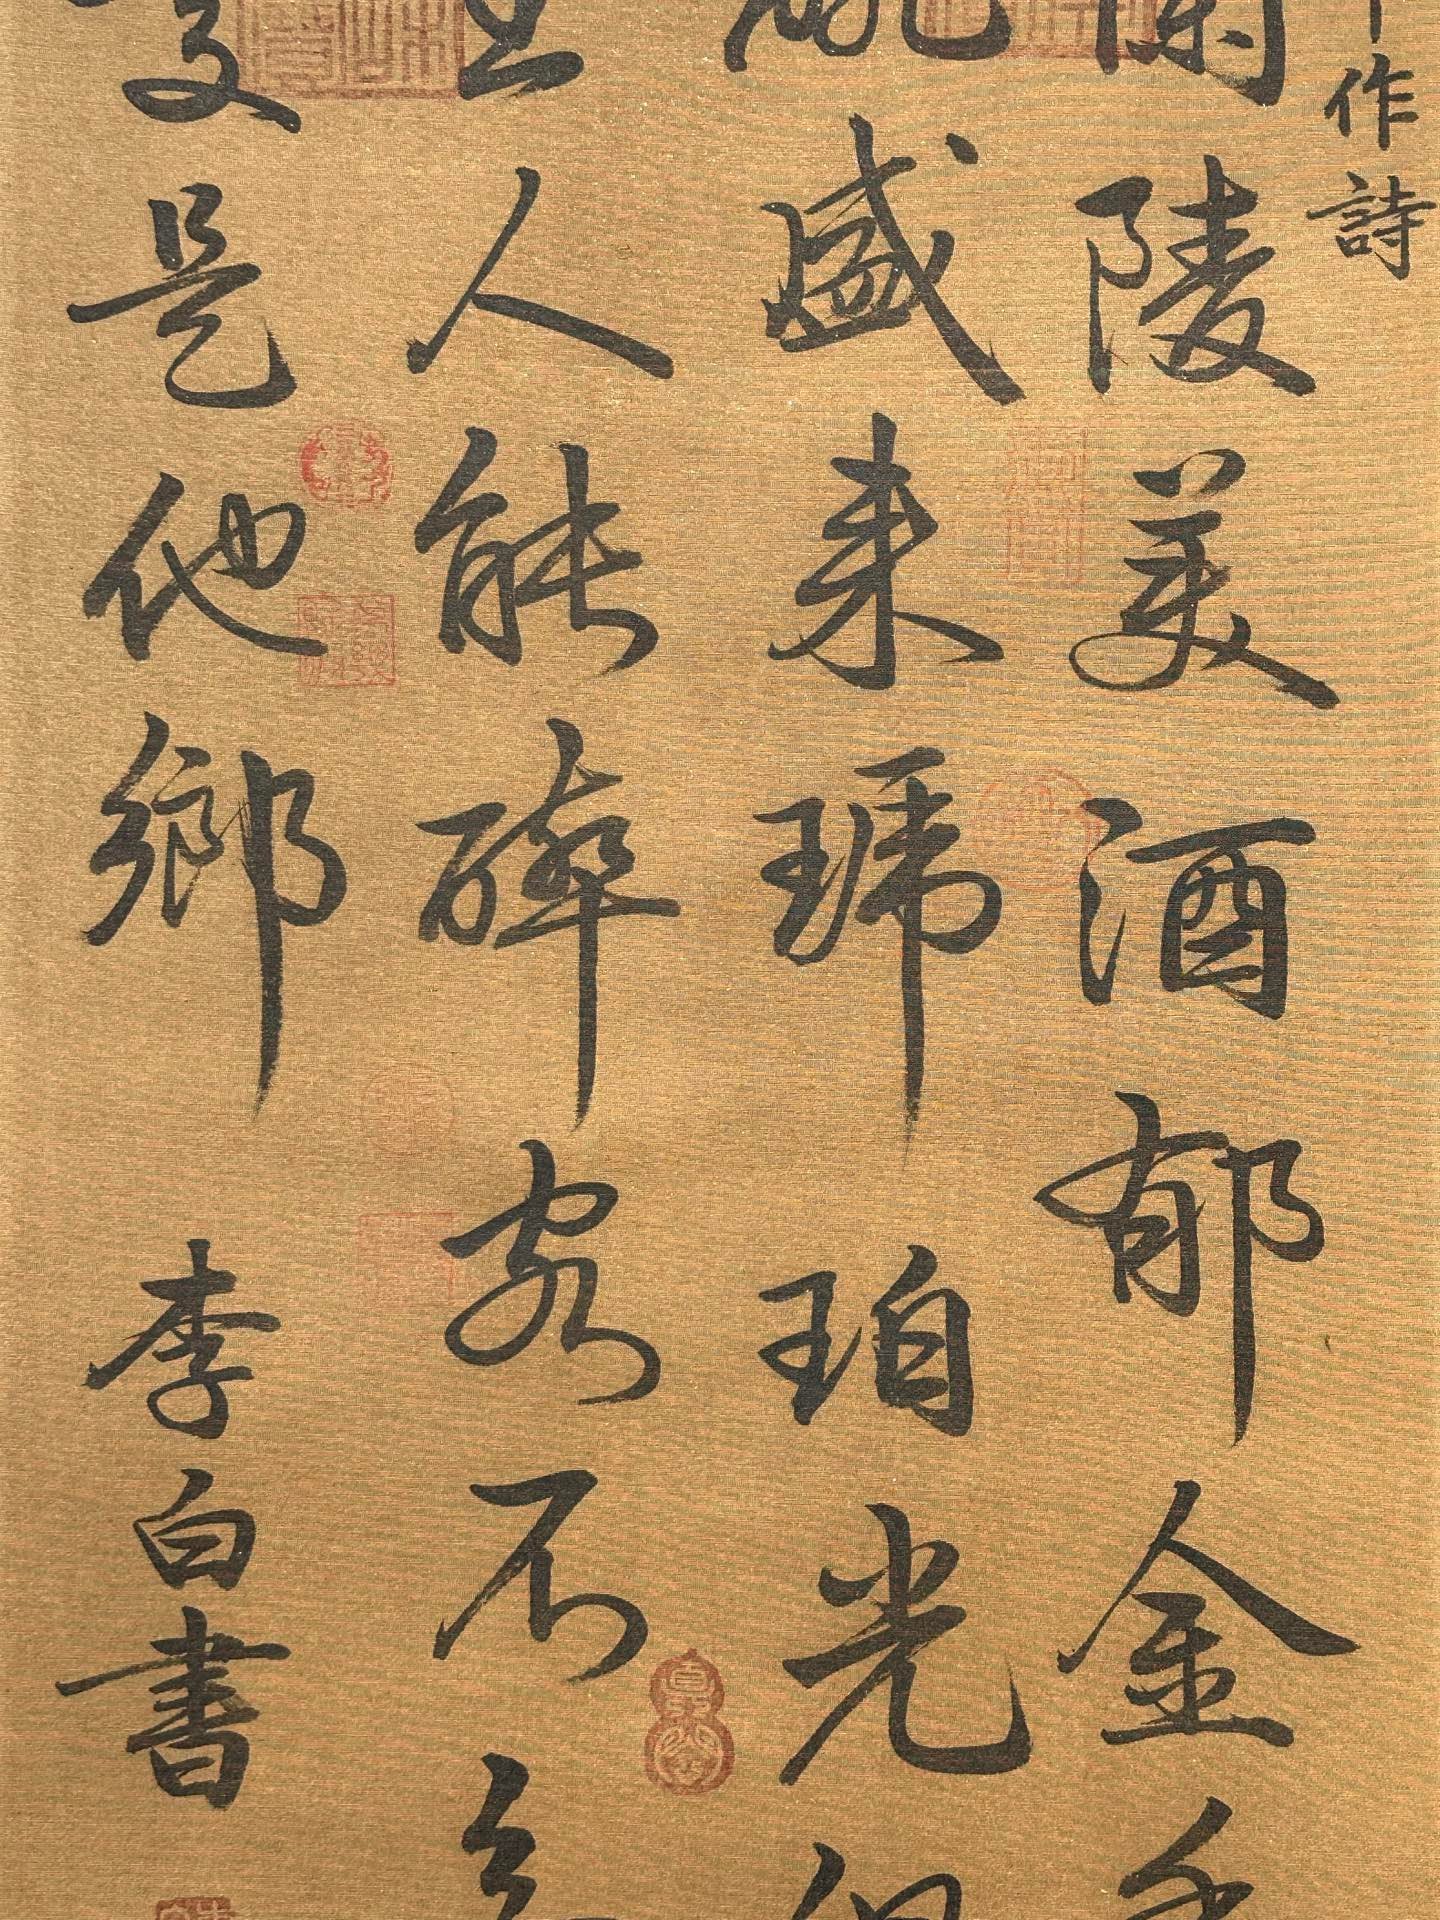 作詩
蘭陵美酒郁金香
碗盛来琥珀光但
主人能醉客不知
處是他鄉 李白書